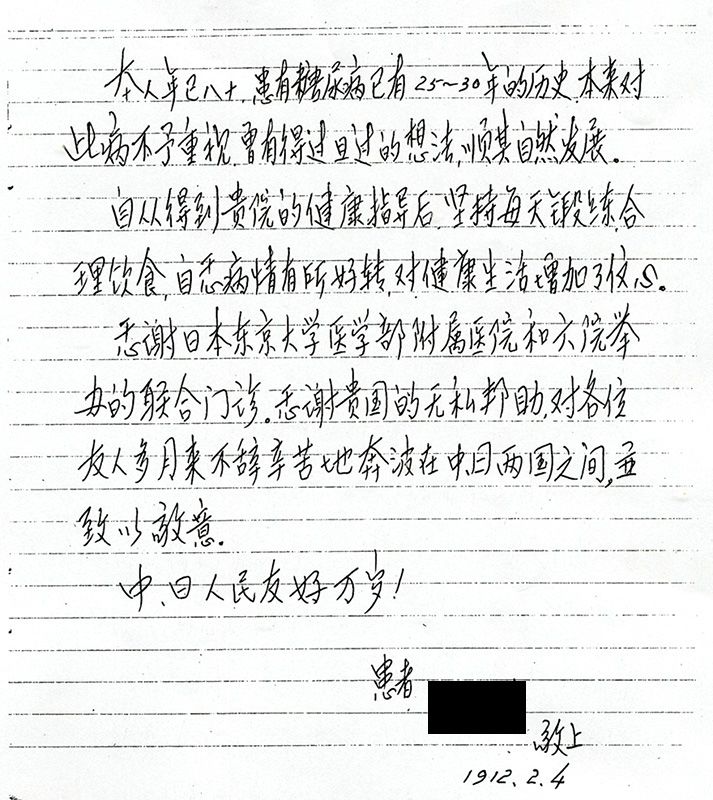 本人年已八十,患有糖尿病已有25~30年的历史,本来对
此病不予重视,曾有得过且过的想法,顺其自然发展。
自从得到贵院的健康指导后,坚持每天锻练,合
理饮食,自觉病情有所好转,对健康生活增加了信心。
感谢日本东京大学医学部附属医院和六院举
办的联合门诊。感谢贵国的无私邦助,对各位
友人多月来不辞辛苦地奔波在中、日两国之间,并
致以敬意.
中、日人民友好万岁!
患者
敬上
1912.2.4